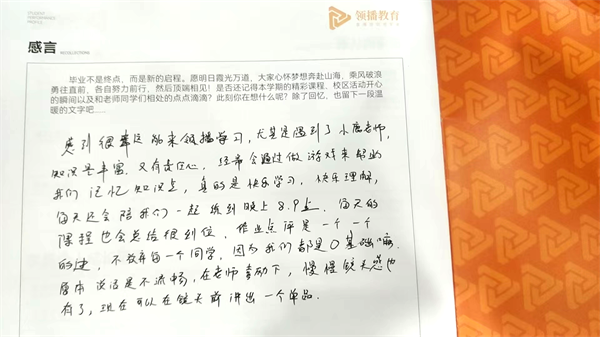 领播教育
感言
毕业不是终点，而是新的启程。愿明日霞光万道，大家心怀梦想奔赴山海，乘风破浪
勇往直前，各自努力前行，然后顶端相见！是否还记得本学期的精彩课程、校区活动开心
的瞬间以及和老师同学们相处的点点滴滴？此刻你在想什么呢？除了回忆，也留下一段温
暖的文字吧......
感到很幸运能来领播学习，尤其是遇到了小唐老师，
知识量丰富，又有责任心，经常会通过做游戏来帮助
我们记忆知识点，真的是快乐学习，快乐理解，
每天还会陪我们一起练到晚上8.9点，每天的
课程也会总结很到位，作业点评是一个一个
的过，不放弃每一个同学，因为我们都是0基础嘛，
原本说话是不流畅，在老师帮助下，慢慢镜头感也
有了，现在可以在镜头前讲出一个单品．